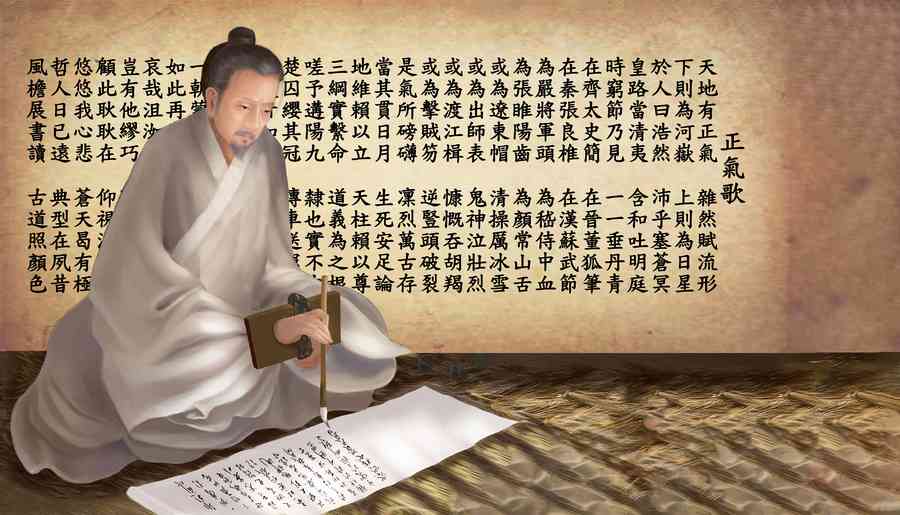 正氣歌
天地有正氣
雜然賦流形
下則為河嶽
上則為日星
於人曰浩然
沛乎塞蒼冥
皇路當清夷
含和吐明庭
時窮節乃見
一一垂丹青
在齊太史簡
在晉董狐筆
在秦張良椎
在漢蘇武節
為嚴將軍頭
為嵇侍中血
為張睢陽齒
為顏常山舌
或為遼東帽
清操厲冰雪
或為出師表
鬼神泣壯烈
或為渡江楫
慷慨吞胡羯
或為擊賊笏
逆豎頭破裂
是氣所磅礴
凜烈萬古存
當其貫日月
生死安足論
地維賴以立
天柱賴以尊
三綱實繫命
道義為之根
嗟予遘陽九
隸也實不
楚囚其冠
傳車送
一朝
如此再
哀哉沮
豈有他繆巧
仰視
顧此耿耿在
悠悠我心悲
蒼天曷有極
哲人日已遠
典型在夙昔
風檐展書讀
古道照顏色